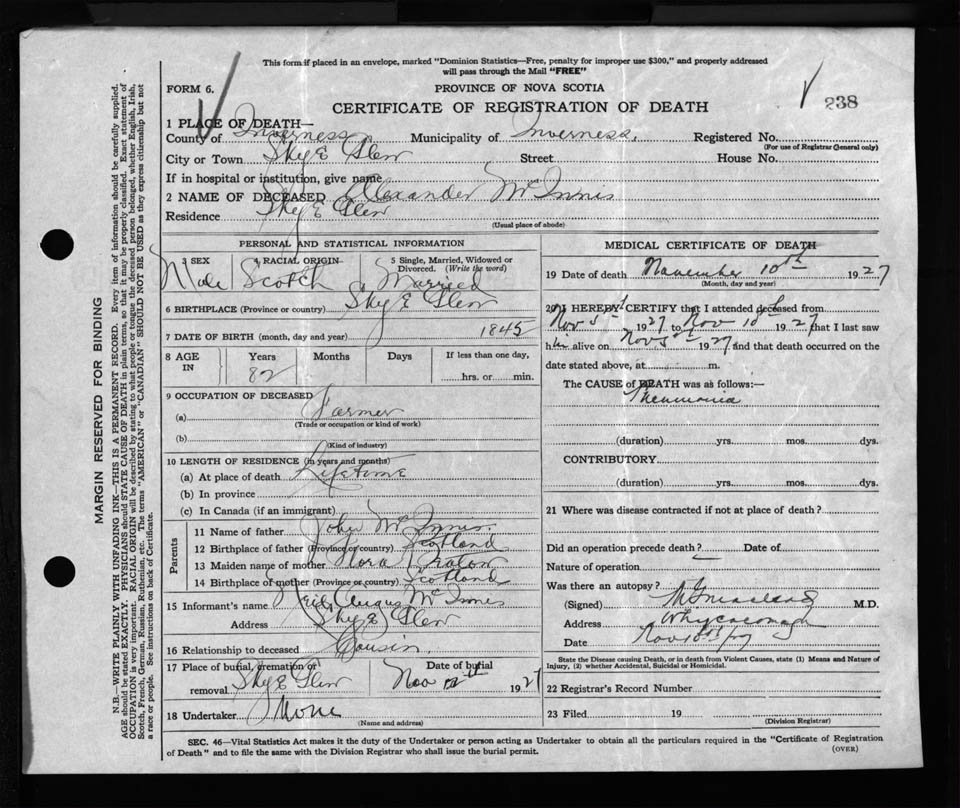 This form if placed in an envelope, marked "Dominion Statistics—Free, penalty for improper use $300," and properly addressed
will pass through the Mail "FREE"
FORM 6.
PROVINCE OF NOVA SCOTIA
238
CERTIFICATE OF REGISTRATION OF DEATH
1 PLACE OF DEATH—
County of Inverness Municipality of Inverness, Registered No.
(For use of Registrar General only)
City or Town SkyE Glen Street House No.
If in hospital or institution, give name
2 NAME OF DECEASED Alexander McInnis
Residence SkyE Glen
(Usual place of abode)
PERSONAL AND STATISTICAL INFORMATION
3 SEX 4 RACIAL ORIGIN 5 Single, Married, Widowed or
Divorced. (Write the word)
Male Scotch Married
6 BIRTHPLACE (Province or country) SkyE Glen
7 DATE OF BIRTH (month, day and year) 1845
8 AGE IN Years Months Days If less than one day,
82 hrs. or min.
9 OCCUPATION OF DECEASED
(a) Farmer
(Trade or occupation or kind of work)
(b)
(Kind of industry)
10 LENGTH OF RESIDENCE (in years and months)
(a) At place of death Lifetime
(b) In province
(c) In Canada (if an immigrant)
Parents
11 Name of father John McInnis.
12 Birthplace of father (Province or country) Scotland
13 Maiden name of mother Flora
14 Birthplace of mother (Province or country) Scotland
15 Informant's name Neil Angus McInnis
Address SkyE Glen
16 Relationship to deceased Cousin.
17 Place of burial, cremation or Date of burial
removal SkyE Glen Nov 12th 1927
18 Undertaker None
(Name and address)
MEDICAL CERTIFICATE OF DEATH
19 Date of death November 10th 1927
(Month, day and year)
20 I HEREBY CERTIFY that I attended deceased from
Nov 5 1927 to Nov 10th 1927 that I last saw
him alive on Nov 5th 1927 and that death occurred on the
date stated above, at m.
The CAUSE of DEATH was as follows:—
Pneumonia
(duration) yrs. mos. dys.
CONTRIBUTORY
(duration) yrs. mos. dys.
21 Where was disease contracted if not at place of death?
Did an operation precede death? Date of
Nature of operation
Was there an autopsy?
(Signed) M.D.
Address Whycocomagh
Date Nov
State the Disease causing Death, or in death from Violent Causes, state (1) Means and Nature of
Injury, (2) whether Accidental, Suicidal or Homicidal.
22 Registrar's Record Number
23 Filed 19
(Division Registrar)
SEC. 46—Vital Statistics Act makes it the duty of the Undertaker or person acting as Undertaker to obtain all the particulars required in the "Certificate of Registration
of Death" and to file the same with the Division Registrar who shall issue the burial permit.
(OVER)
MARGIN RESERVED FOR BINDING
N.B.—WRITE PLAINLY WITH UNFADING INK—THIS IS A PERMANENT RECORD. Every item of information should be carefully supplied.
AGE should be stated EXACTLY. PHYSICIANS should STATE CAUSE OF DEATH in plain terms, so that it may be properly classified. Exact statement of
OCCUPATION is very important. RACIAL ORIGIN will be described by stating to what people or tongue the deceased person belonged, whether English, Irish,
Scotch, French, German, Russian, Ruthenian, etc. The terms "AMERICAN" or "CANADIAN" SHOULD NOT BE USED as they express citizenship but not
a race or people. See instructions on back of Certificate.